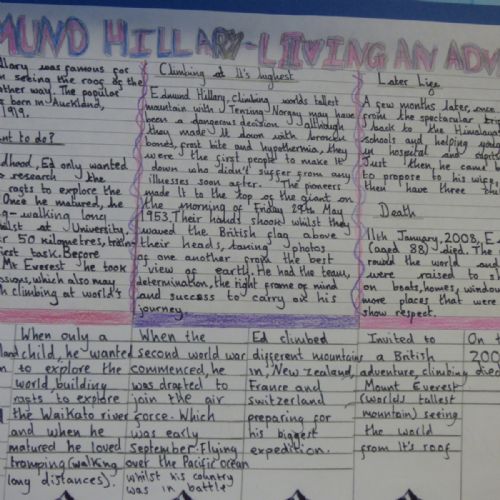 MUND HILLARY-LIVING AN ADV
llary was famous for
seeing the roof of the
other way. The popular
born in Auckland,
1919.
nt to do?
dhood, Ed only wanted
research the
rasts to explore the
Once he matured, he
g-walking long
hilst at University.
50 kilometres,
first task. Before
Mt Everest he took
ssons, which also may
climbing at world's
Climbing at It's highest
Edmund Hillary, climbing worlds tallest
mountain with Tenzing Norgay may have
been a dangerous decision, although
they made it down with broken
bones, frost bite and hypothermia, they
were the first people to make it
down who didn't suffer from any
illnesses soon after. The pioneers
made it to the top of the giant on
the morning of Friday 29th May
1953. Their hands shook whilst they
waved the British flag above
their heads, taking photos
of one another from the best
view of earth. He had the team,
determination, the right frame of mind
and success to carry on his
journey.
Later Life
A few months later, once
from the spectacular
back to the Himalay
schools and helping
in hospital and
Just then, he came b
to propose to his wife,
then have three
Death
11th January, 2008, E
(aged 88) died. The
round the world and
were raised to
on boats, homes, window
more places that were
show respect.
When only a
child, he wanted
to explore the
world, building
rasts to explore
the Waikato river
and when he
matured he loved
tramping (walking
long distances).
When the
second world war
commenced, he
was drafted to
join the air
force. Which
was early
September. Flying
over the Pacific ocean
whilst his country
was in battle
Ed climbed
different mountains
in New Zealand,
France and
Switzerland
preparing for
his biggest
expedition.
Invited to
a British
adventure, climbing
Mount Everest
(worlds tallest
mountain) seeing
the world
from it's roof
On t
200
died